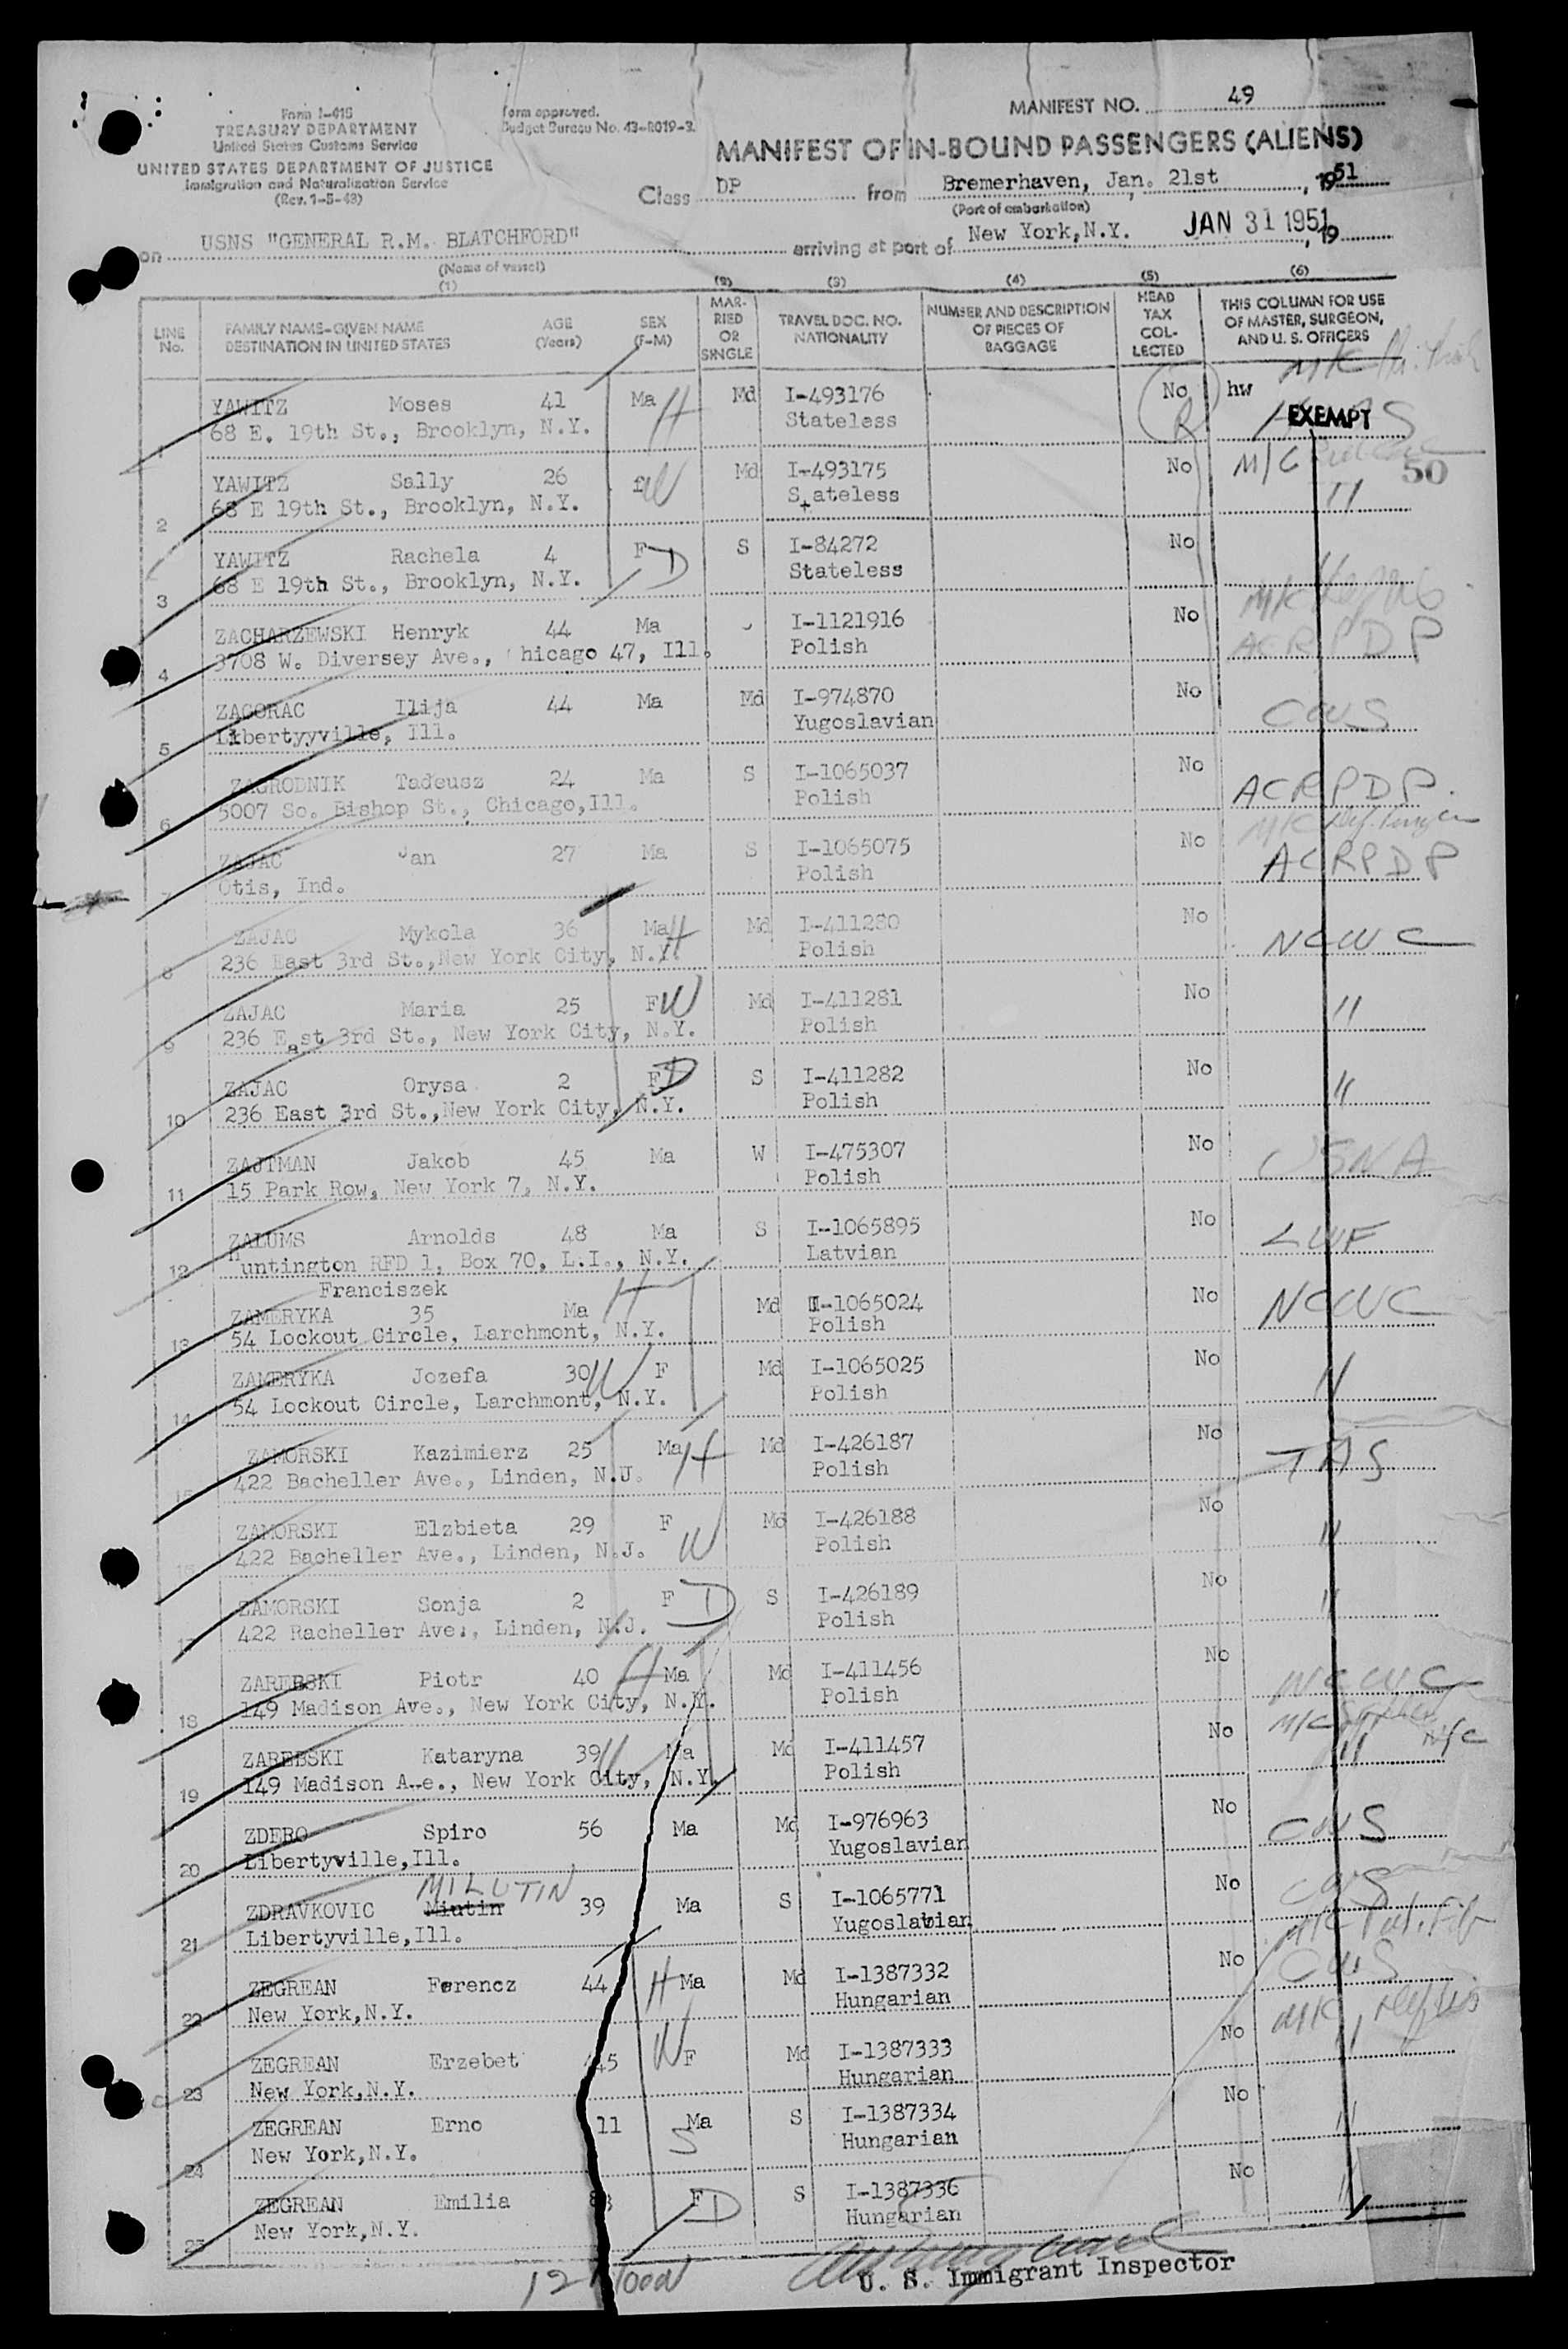 Form I-415
TREASURY DEPARTMENT
United States Customs Service
UNITED STATES DEPARTMENT OF JUSTICE
Immigration and Naturalization Service
Form approved.
Budget Bureau No. 43-R019-3.
MANIFEST NO. 49
MANIFEST OF IN-BOUND PASSENGERS (ALIENS)
Class DP from Bremerhaven, Jan. 21st, 1951
(Port of embarkation)
on USNS "GENERAL R.M. BLATCHFORD" arriving at port of New York,N.Y. JAN 31 1951, 19
(Name of vessel)
(1) (2) (3) (4) (5) (6)
LINE No. FAMILY NAME-GIVEN NAME DESTINATION IN UNITED STATES AGE (Years) SEX (F-M) MARRIED OR SINGLE TRAVEL DOC. NO. NATIONALITY NUMBER AND DESCRIPTION OF PIECES OF BAGGAGE HEAD TAX COLLECTED THIS COLUMN FOR USE OF MASTER, SURGEON, AND U. S. OFFICERS
1 YAWITZ Moses 41 Ma H Md I-493176 No hw
68 E. 19th St., Brooklyn, N.Y. Stateless R EXEMPT
2 YAWITZ Sally 26 W Md I-493175 No M/C 50
68 E 19th St., Brooklyn, N.Y. Stateless "
3 YAWITZ Rachela 4 F D S I-84272 No
68 E 19th St., Brooklyn, N.Y. Stateless "
4 ZACHARZEWSKI Henryk 44 Ma I-1121916 No
3708 W. Diversey Ave., hicago 47, Ill. Polish ACRPDP
5 ZAGORAC Ilija 44 Ma Md I-974870 No
Libertyyville, Ill. Yugoslavian CWS
6 ZAGRODNIK Tadeusz 24 Ma S I-1065037 No
5007 So. Bishop St., Chicago,Ill. Polish ACRPDP.
7 ZAJAC Jan 27 Ma S I-1065075 No
Otis, Ind. Polish ACRPDP
8 ZAJAC Mykola 36 Ma H Md I-411280 No
236 East 3rd St.,New York City, N.Y. Polish NCWC
9 ZAJAC Maria 25 F W Md I-411281 No
236 East 3rd St., New York City, N.Y. Polish "
10 ZAJAC Orysa 2 F D S I-411282 No
236 East 3rd St.,New York City, N.Y. Polish "
11 ZAJTMAN Jakob 45 Ma W I-475307 No
15 Park Row, New York 7, N.Y. Polish USNA
12 ZALUMS Arnolds 48 Ma S I-1065895 No
Huntington RFD 1, Box 70, L.I., N.Y. Latvian LWF
Franciszek
13 ZAMERYKA 35 Ma H Md I-1065024 No
54 Lockout Circle, Larchmont, N.Y. Polish NCWC
14 ZAMERYKA Jozefa 30 W F Md I-1065025 No
54 Lockout Circle, Larchmont, N.Y. Polish "
15 ZAMORSKI Kazimierz 25 Ma H Md I-426187 No
422 Bacheller Ave., Linden, N.J. Polish TAS
16 ZAMORSKI Elzbieta 29 F W Md I-426188 No
422 Bacheller Ave., Linden, N.J. Polish "
17 ZAMORSKI Sonja 2 F D S I-426189 No
422 Racheller Ave., Linden, N.J. Polish "
18 ZAREBSKI Piotr 40 H Ma Md I-411456 No
149 Madison Ave., New York City, N.Y. Polish NCWC
19 ZAREBSKI Kataryna 39 W Ma Md I-411457 No M/C
149 Madison Ave., New York City, N.Y. Polish "
20 ZDERO Spiro 56 Ma Md I-976963 No
Libertyville,Ill. Yugoslavian CWS
MILUTIN
21 ZDRAVKOVIC Miutin 39 Ma S I-1065771 No
Libertyville,Ill. Yugoslavian CWS
22 ZEGREAN Ferencz 44 H Ma Md I-1387332 No
New York,N.Y. Hungarian CWS
23 ZEGREAN Erzebet 45 W F Md I-1387333 No
New York,N.Y. Hungarian "
24 ZEGREAN Erno 11 Ma S S I-1387334 No
New York,N.Y. Hungarian "
25 ZEGREAN Emilia F D S I-1387336 No
New York,N.Y. Hungarian "
U. S. Immigrant Inspector